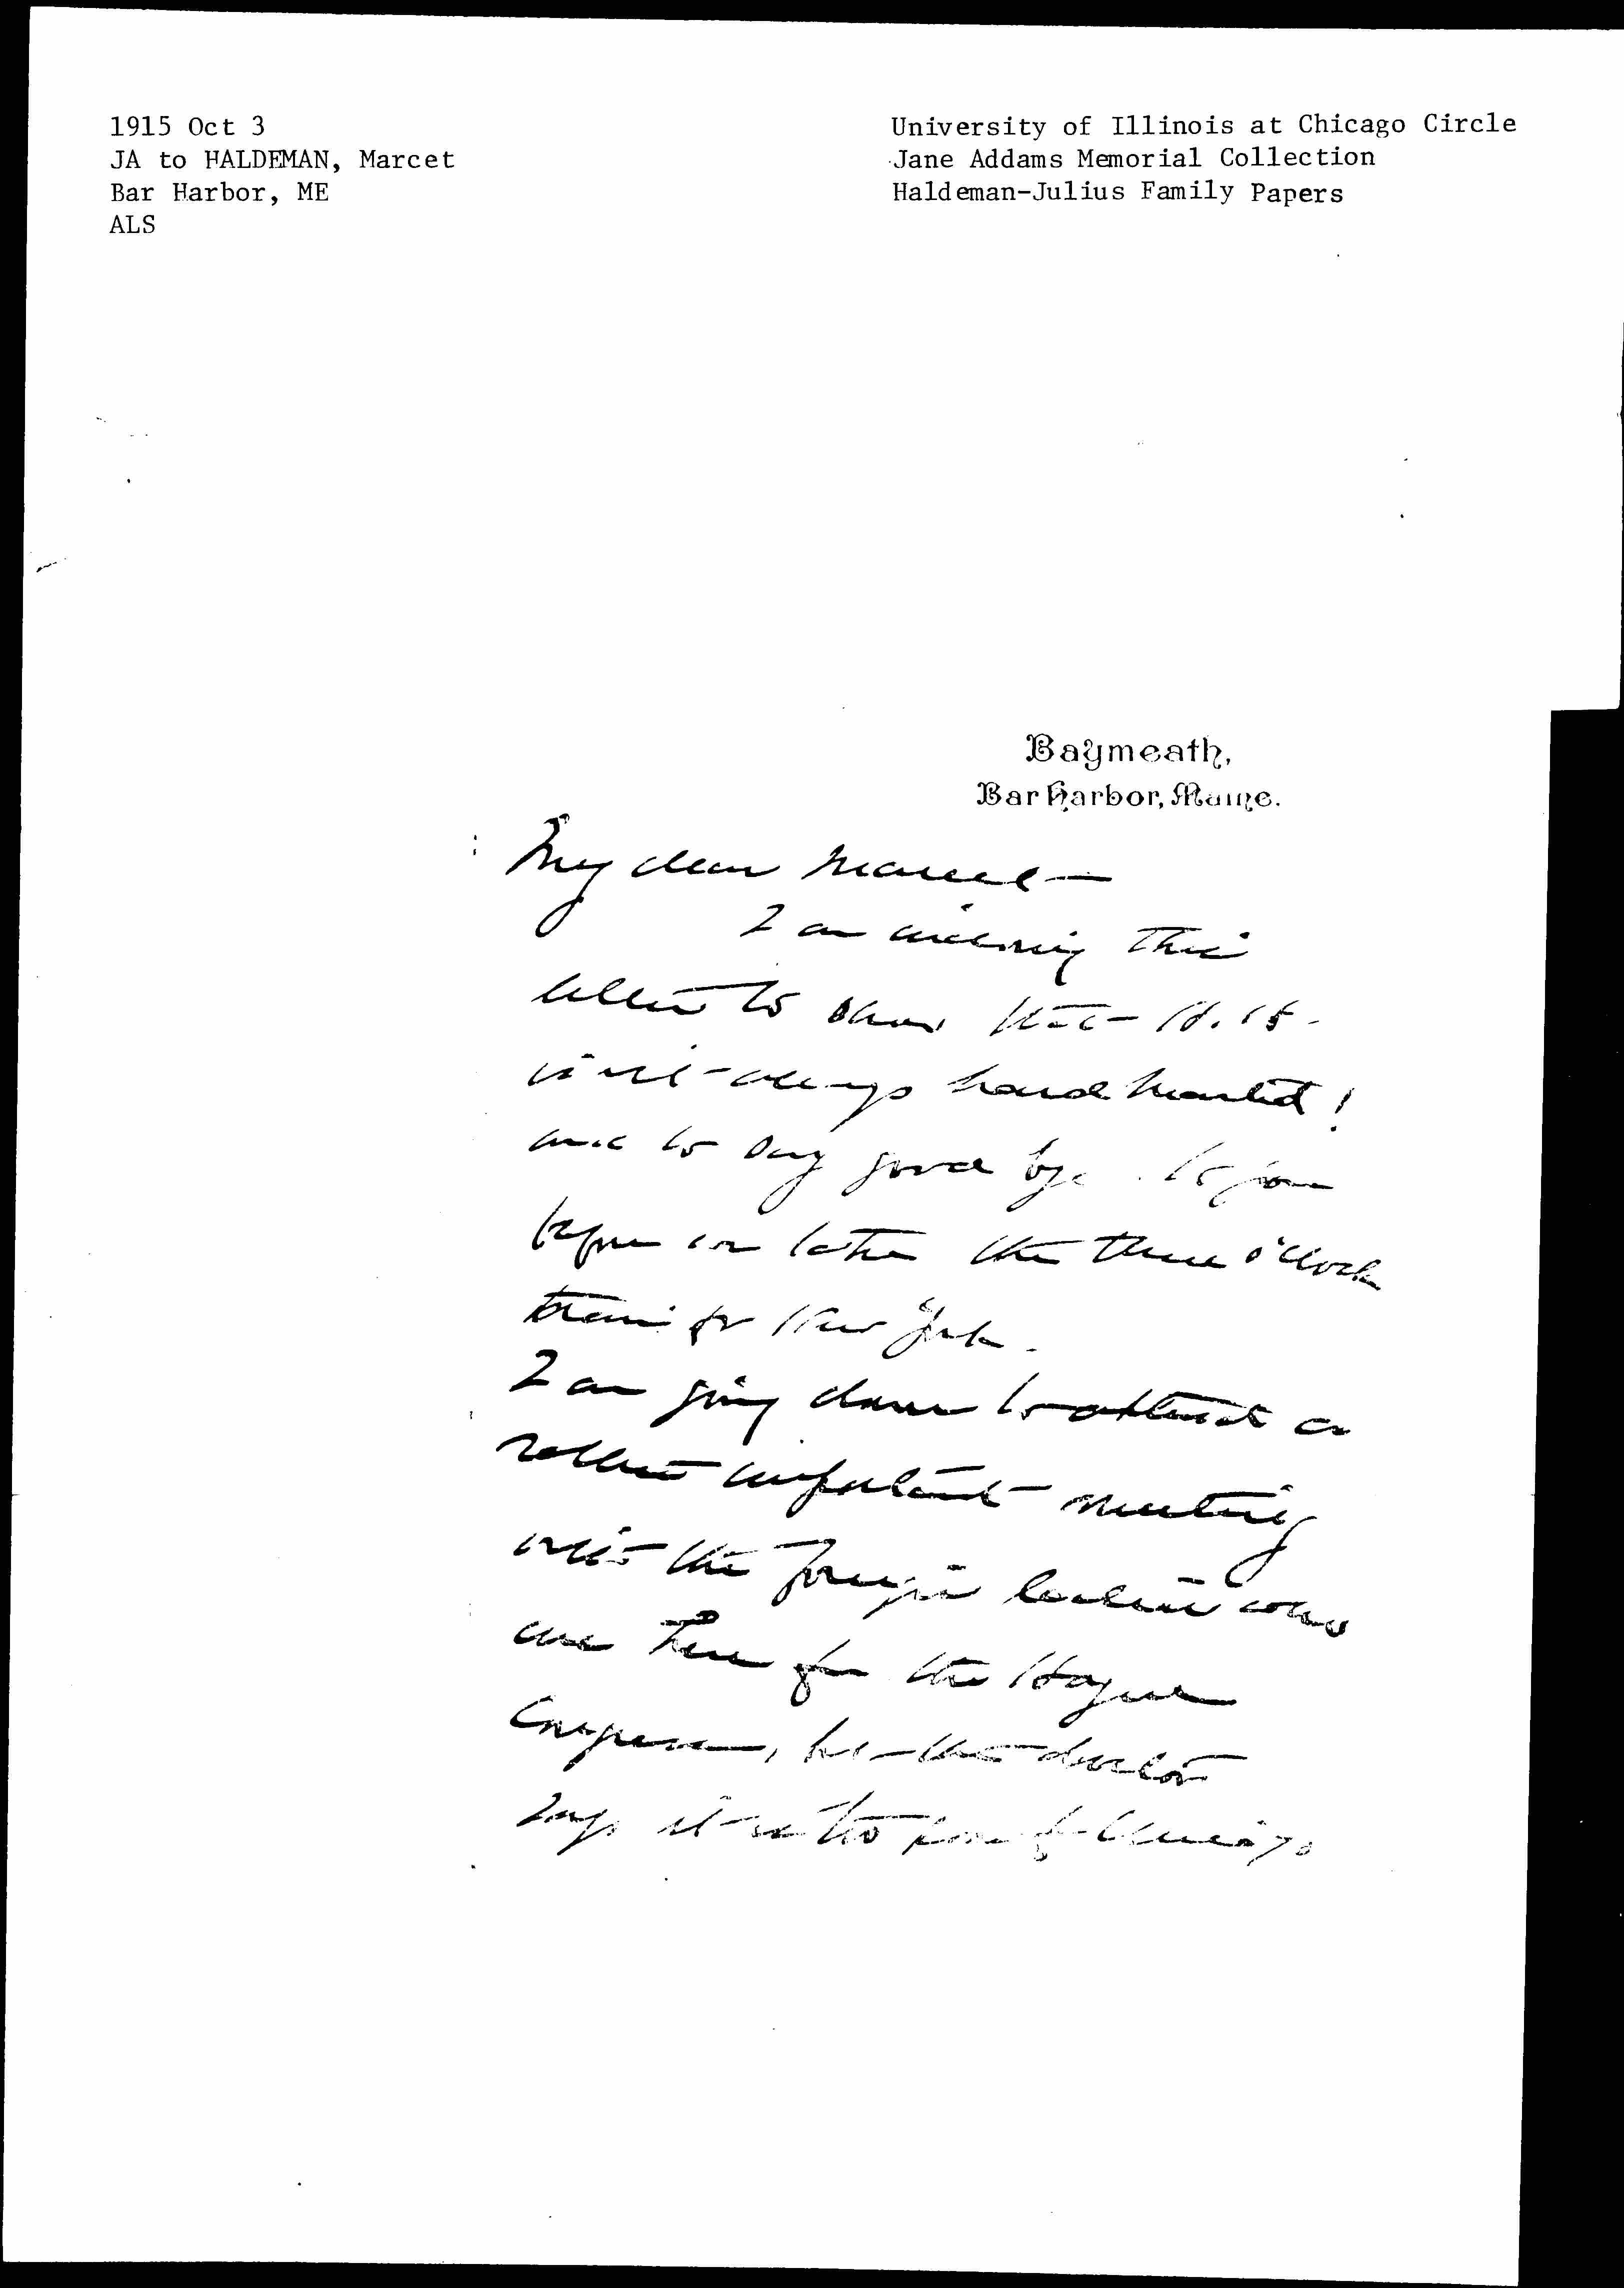 1915 Oct 3
JA to HALDEMAN, Marcet
Bar Harbor, ME
ALS
University of Illinois at Chicago Circle
Jane Addams Memorial Collection
Haldeman-Julius Family Papers
Baymeath,
Bar Harbor, Maine.
My dear Marcet —
I am enclosing this
letter to show that H. H.
is not always hard hearted!
and to say good bye to you
before I take the three o'clock
train for New York.
I am going down to attend a
rather important meeting
with the foreign leaders who
are here for the Hague
Congress, but the doctor
says it is to